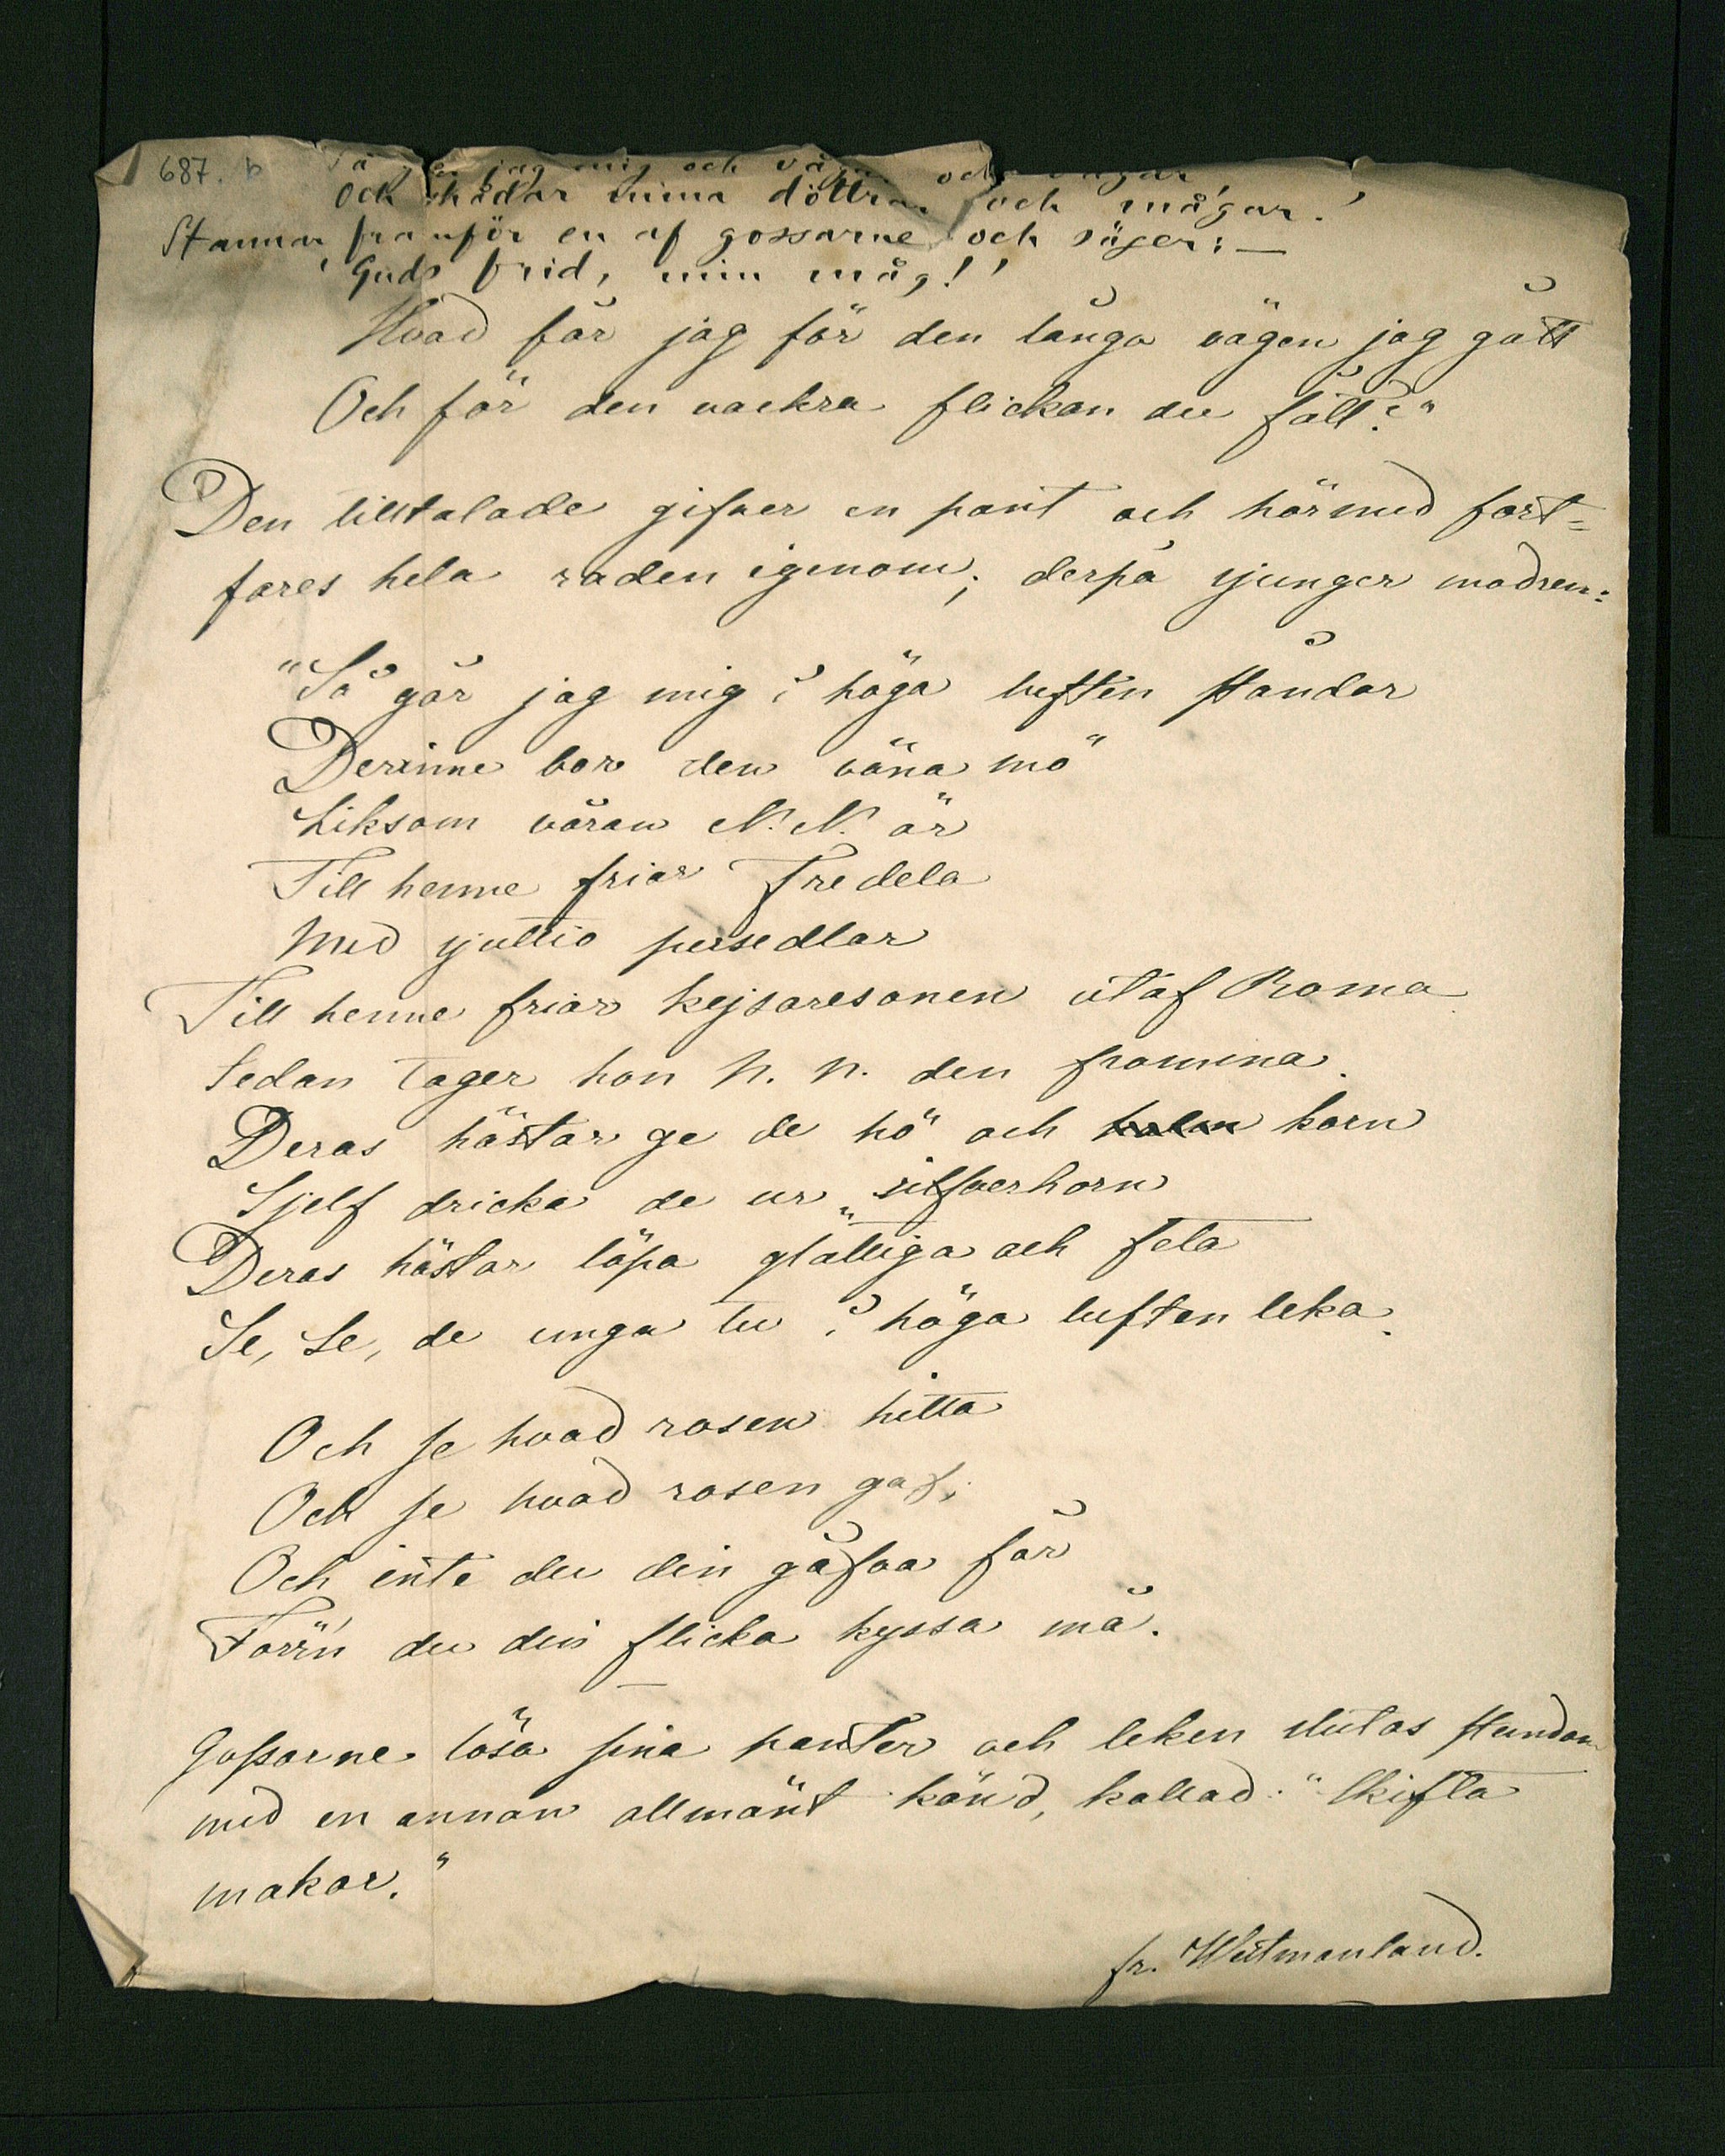 687. b
Så går jag mig och vågar och vågar
Och skådar mina döttrar och mågar.'
Stannar framför en af gossarne och säger: —
'Guds frid, min måg!'
Hvad får jag för den långa vägen jag gått
Och för den vackra flickan du fått?"
Den tilltalade gifver en pant och härmed fort-
fares hela raden igenom; derpå sjunger modren:
"Så går jag mig i höga luften ståndar
Derinne bor den väna mö
Liksom våran N. N. är
Till henne friar Fredela
Med sjuttio persedlar
Till henne friar kejsaresonen utaf Roma
Sedan tager hon N. N. den fromma.
Deras hästar ge de hö och korn
Sjelf dricka de ur silfverhorn
Deras hästar löpa glättiga och feta
Se, se, de unga tu i höga luften leka.
Och se hvad rosen hitta
Och se hvad rosen gaf,
Och inte du din gåfva får
Förr'n du din flicka kyssa må.
Gossarne lösa sina panter och leken slutas stundom
med en annan allmänt känd, kallad: "Skifta
makar."
fr. Westmanland.